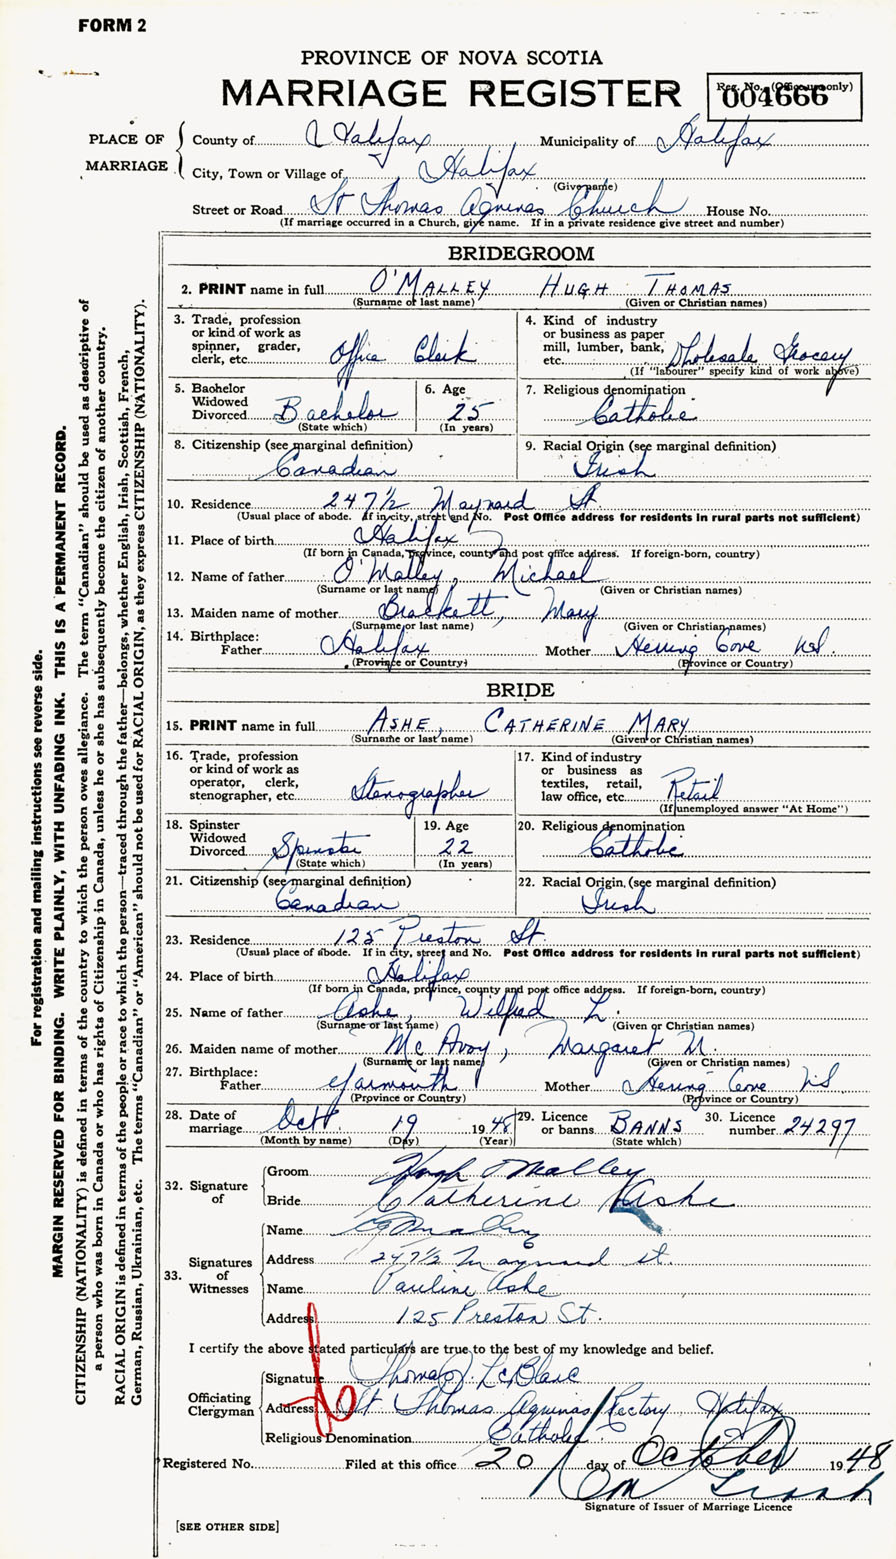 FORM 2
PROVINCE OF NOVA SCOTIA
MARRIAGE REGISTER
Reg. No. (Office use only)
004666
PLACE OF MARRIAGE
County of Halifax Municipality of Halifax
City, Town or Village of Halifax
(Give name)
Street or Road St Thomas Aquinas Church House No.
(If marriage occurred in a Church, give name. If in a private residence give street and number)
BRIDEGROOM
2. PRINT name in full O'MALLEY HUGH THOMAS
(Surname or last name) (Given or Christian names)
3. Trade, profession or kind of work as spinner, grader, clerk, etc. Office Clerk
4. Kind of industry or business as paper mill, lumber, bank, etc. Wholesale Grocery
(If "labourer" specify kind of work above)
5. Bachelor Widowed Divorced Bachelor
(State which)
6. Age 25
(In years)
7. Religious denomination
Catholic
8. Citizenship (see marginal definition)
Canadian
9. Racial Origin (see marginal definition)
Irish
10. Residence 247½ Maynard St.
(Usual place of abode. If in city, street and No. Post Office address for residents in rural parts not sufficient)
11. Place of birth Halifax
(If born in Canada, Province, county and post office address. If foreign-born, country)
12. Name of father O'Malley, Michael
(Surname or last name) (Given or Christian names)
13. Maiden name of mother Brackett, Mary
(Surname or last name) (Given or Christian names)
14. Birthplace:
Father Halifax Mother Herring Cove N.S.
(Province or Country) (Province or Country)
BRIDE
15. PRINT name in full ASHE, CATHERINE MARY
(Surname or last name) (Given or Christian names)
16. Trade, profession or kind of work as operator, clerk, stenographer, etc. Stenographer
17. Kind of industry or business as textiles, retail, law office, etc. Retail
(If unemployed answer "At Home")
18. Spinster Widowed Divorced Spinster
(State which)
19. Age 22
(In years)
20. Religious denomination
Catholic
21. Citizenship (see marginal definition)
Canadian
22. Racial Origin, (see marginal definition)
Irish
23. Residence 125 Preston St.
(Usual place of abode. If in city, street and No. Post Office address for residents in rural parts not sufficient)
24. Place of birth Halifax
(If born in Canada, province, county and post office address. If foreign-born, country)
25. Name of father Ashe, Wilfred L.
(Surname or last name) (Given or Christian names)
26. Maiden name of mother McAvoy, Margaret M.
(Surname or last name) (Given or Christian names)
27. Birthplace:
Father Yarmouth Mother Herring Cove NS
(Province or Country) (Province or Country)
28. Date of marriage Oct. 19 1948
(Month by name) (Day) (Year)
29. Licence or banns BANNS
(State which)
30. Licence number 24297
32. Signature of
Groom Hugh O'Malley
Bride Catherine Ashe
33. Signatures of Witnesses
Name
Address 247½ Maynard St.
Name Pauline Ashe
Address 125 Preston St.
I certify the above stated particulars are true to the best of my knowledge and belief.
Officiating Clergyman
Signature Thomas J. LeBlanc
Address St Thomas Aquinas Rectory Halifax
Religious Denomination Catholic
Registered No. Filed at this office 20 day of October 1948
Signature of Issuer of Marriage Licence
[SEE OTHER SIDE]
For registration and mailing instructions see reverse side.
MARGIN RESERVED FOR BINDING. WRITE PLAINLY, WITH UNFADING INK. THIS IS A PERMANENT RECORD.
CITIZENSHIP (NATIONALITY) is defined in terms of the country to which the person owes allegiance. The term "Canadian" should be used as descriptive of
a person who was born in Canada or who has rights of Citizenship in Canada, unless he or she has subsequently become the citizen of another country.
RACIAL ORIGIN is defined in terms of the people or race to which the person—traced through the father—belongs, whether English, Irish, Scottish, French,
German, Russian, Ukrainian, etc. The terms "Canadian" or "American" should not be used for RACIAL ORIGIN, as they express CITIZENSHIP (NATIONALITY).